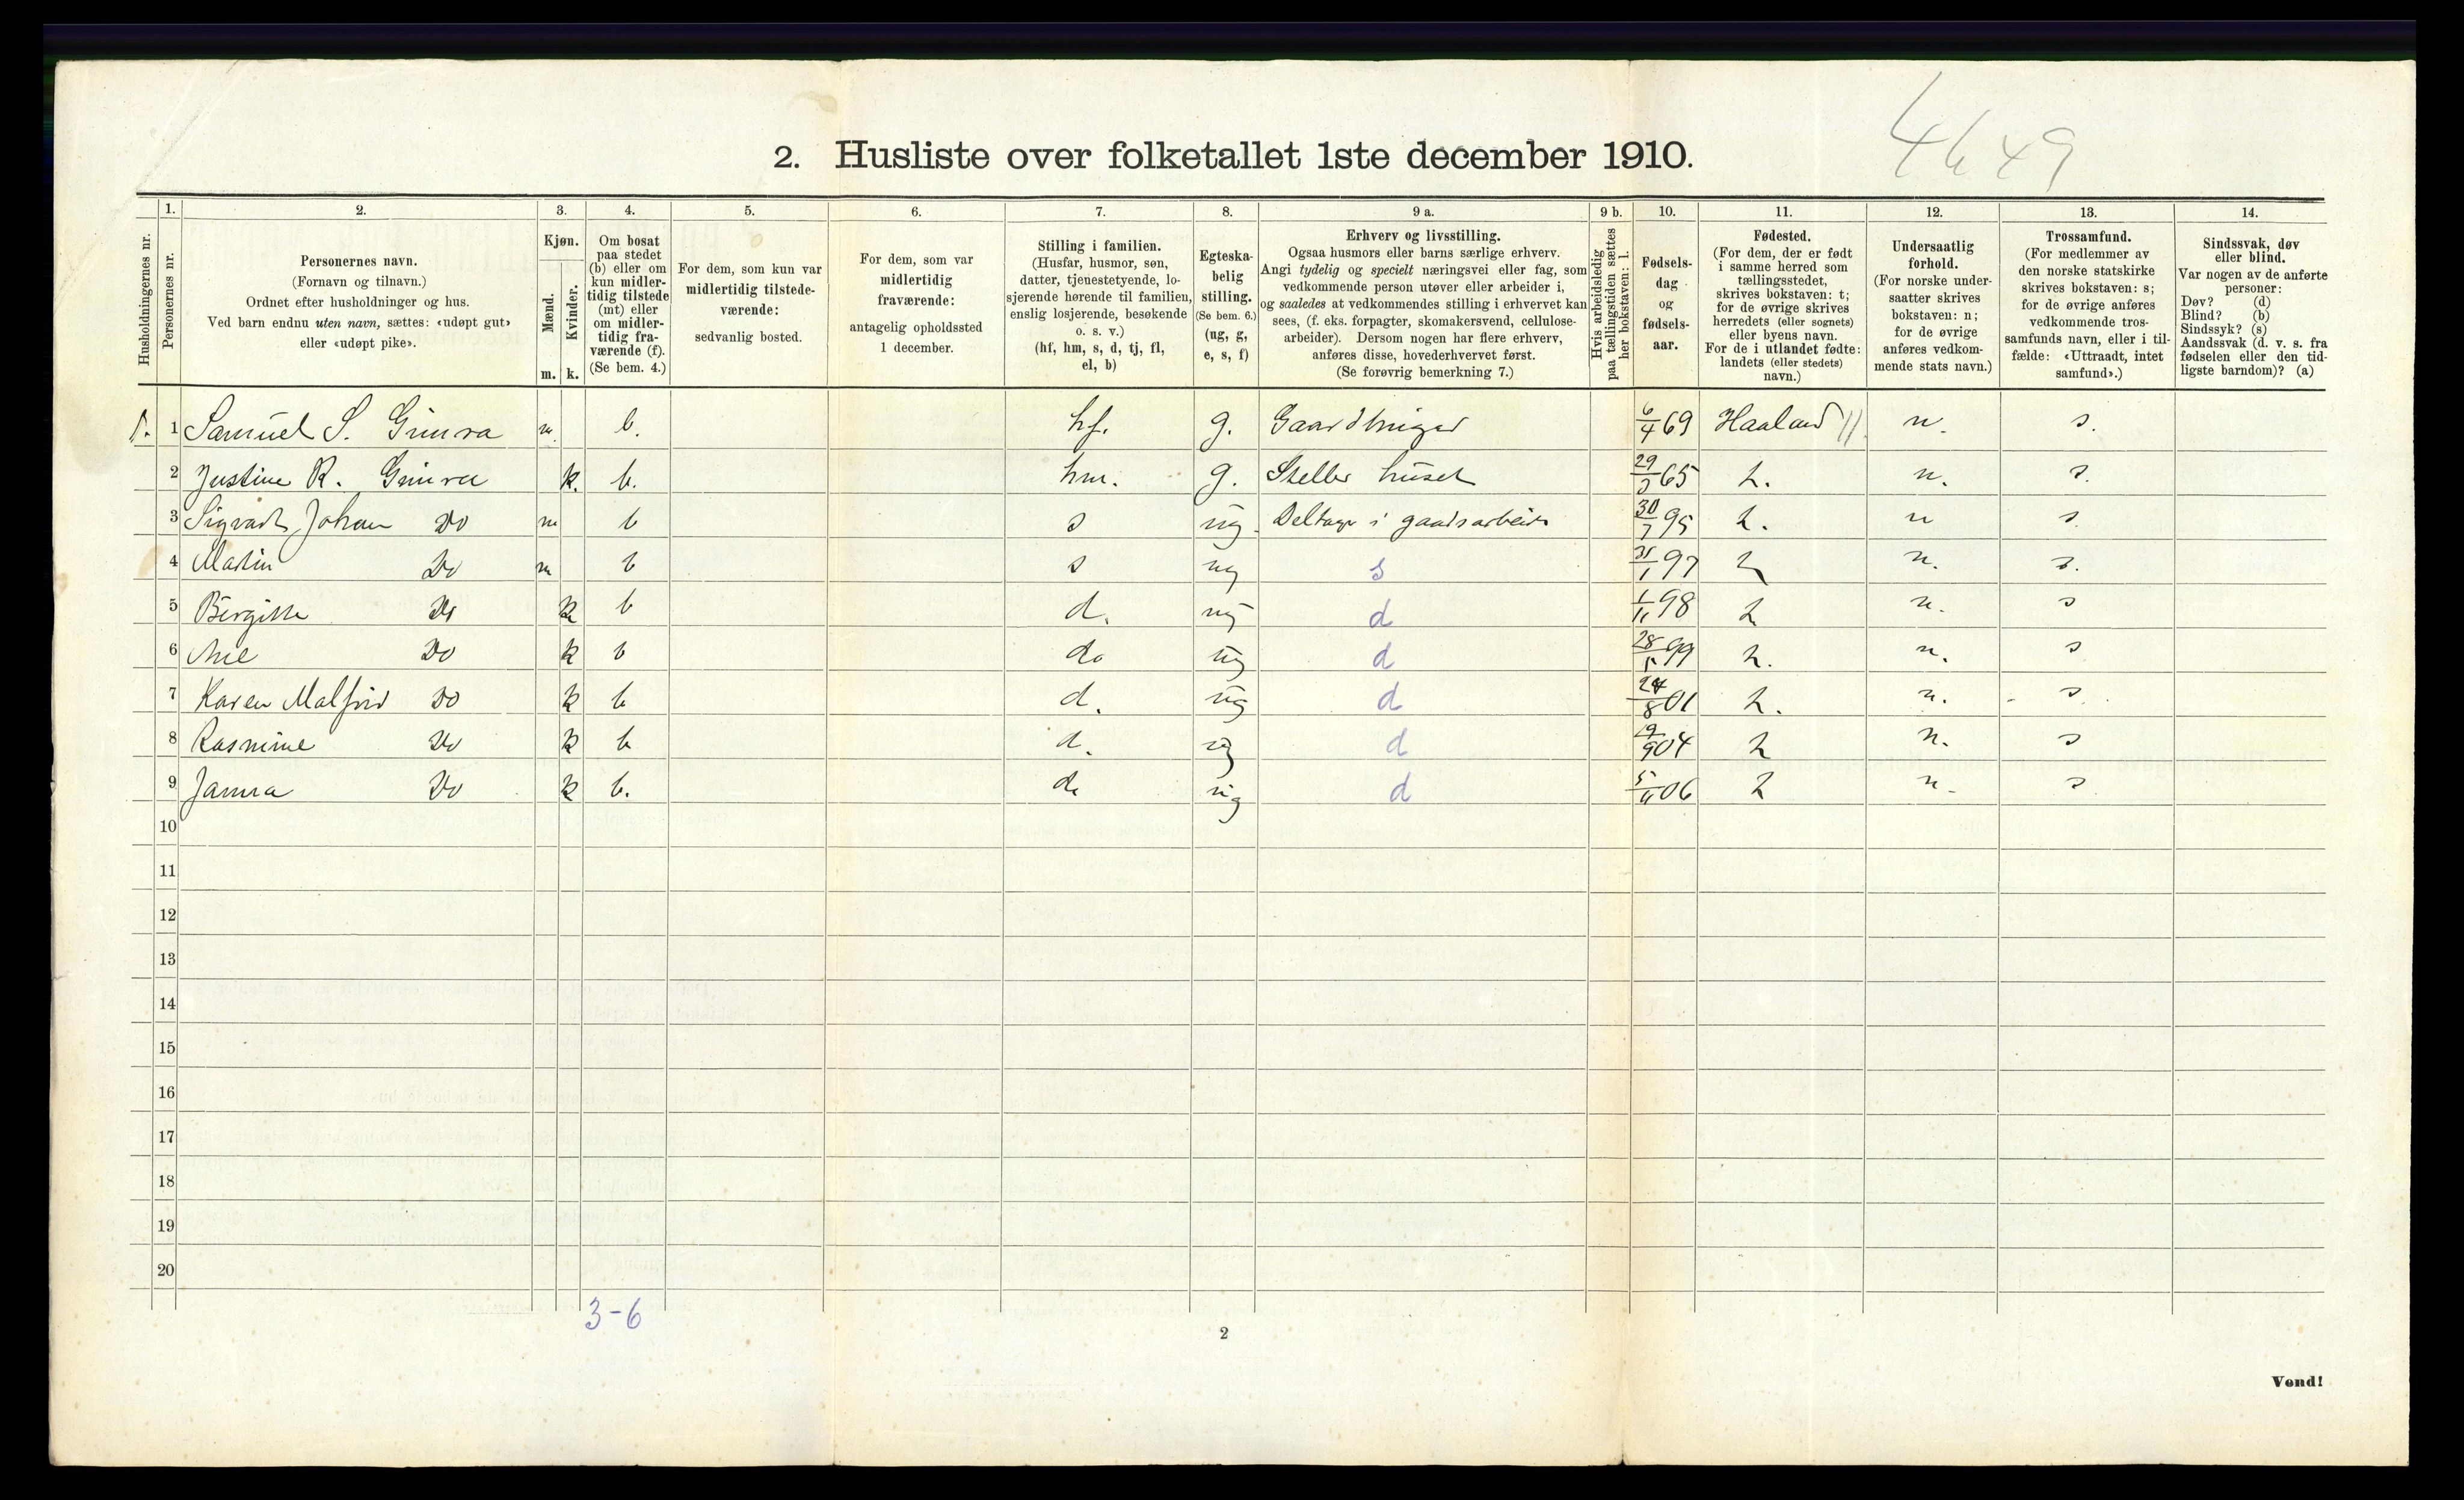 2. Husliste over folketallet 1ste december 1910.
4649
Husholdningernes nr.
1.
Personernes nr.
2.
Personernes navn.
(Fornavn og tilnavn.)
Ordnet efter husholdninger og hus.
Ved barn endnu uten navn, sættes: «udøpt gut»
eller «udøpt pike».
3.
Kjøn.
Mænd.
Kvinder.
m. k.
4.
Om bosat
paa stedet
(b) eller om
kun midler-
tidig tilstede
(mt) eller
om midler-
tidig fra-
værende (f).
(Se bem. 4.)
5.
For dem, som kun var
midlertidig tilstede-
værende:
sedvanlig bosted.
6.
For dem, som var
midlertidig
fraværende:
antagelig opholdssted
1 december.
7.
Stilling i familien.
(Husfar, husmor, søn,
datter, tjenestetyende, lo-
sjerende hørende til familien,
enslig losjerende, besøkende
o. s. v.)
(hf, hm, s, d, tj, fl,
el, b)
8.
Egteska-
belig
stilling.
(Se bem. 6.)
(ug, g,
e, s, f)
9 a.
Erhverv og livsstilling.
Ogsaa husmors eller barns særlige erhverv.
Angi tydelig og specielt næringsvei eller fag, som
vedkommende person utøver eller arbeider i,
og saaledes at vedkommendes stilling i erhvervet kan
sees, (f. eks. forpagter, skomakersvend, cellulose-
arbeider). Dersom nogen har flere erhverv,
anføres disse, hovederhvervet først.
(Se forøvrig bemerkning 7.)
9 b.
Hvis arbeidsledig
paa tællingstiden sættes
her bokstaven: l.
10.
Fødsels-
dag
og
fødsels-
aar.
11.
Fødested.
(For dem, der er født
i samme herred som
tællingsstedet,
skrives bokstaven: t;
for de øvrige skrives
herredets (eller sognets)
eller byens navn.
For de i utlandet fødte:
landets (eller stedets)
navn.)
12.
Undersaatlig
forhold.
(For norske under-
saatter skrives
bokstaven: n;
for de øvrige
anføres vedkom-
mende stats navn.)
13.
Trossamfund.
(For medlemmer av
den norske statskirke
skrives bokstaven: s;
for de øvrige anføres
vedkommende tros-
samfunds navn, eller i til-
fælde: «Uttraadt, intet
samfund».)
14.
Sindssvak, døv
eller blind.
Var nogen av de anførte
personer:
Døv? (d)
Blind? (b)
Sindssyk? (s)
Aandssvak (d. v. s. fra
fødselen eller den tid-
ligste barndom)? (a)
1. 1 Samuel S. Gimra m. b. hf. g. Gaardbruger 6/4 69 Haaland n. s.
2 Justine R. Gimra k. b. hm. g. Steller huset 65 n. s.
3 Sigvart Johan Do m b s ug Deltager i gaardsarbeide 30/7 95 n s
4 Martin Do m b s ug s 31/1 97 n. s.
5 Bergitte Do k b d. ug d 1/11 98 n. s
6 Ane Do k b d. ug d 99 n. s
7 Karen Malfrid Do k b d. ug d 24/8 01 n. s
8 Rasmine Do k b d. ug d 04 n. s
9 Janna Do k b. d. ug d 5/11 06 n. s
10
11
12
13
14
15
16
17
18
19
20
3-6
2
Vend!